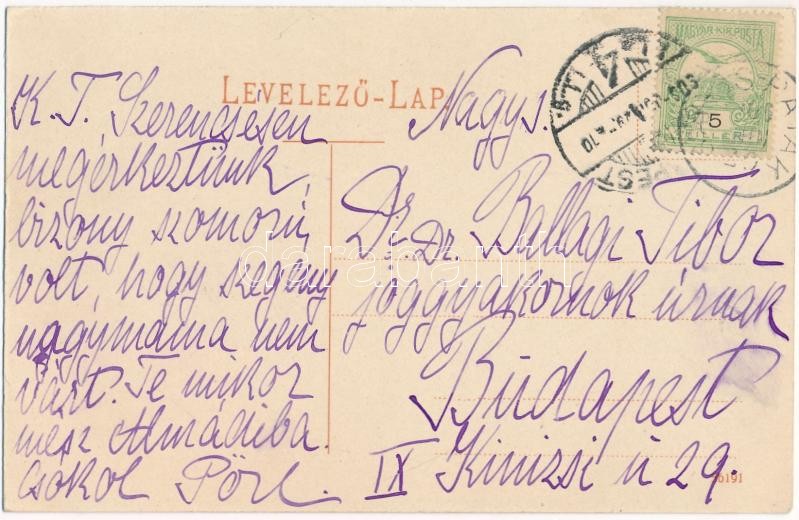 LEVELEZŐ-LAP
K. T. Szerencsésen
megérkeztünk,
bizony szomorú
volt, hogy szegény
nagymama nem
várt. Te mikor
mész Almádiba.
Csókol Pöri.
Nagys.
Dr. Dr. Ballagi Tibor
joggyakornok úrnak
Budapest
IX Kinizsi ú 29.
MAGYAR·KIR·POSTA
5
FILLÉR
PEST
darabanth